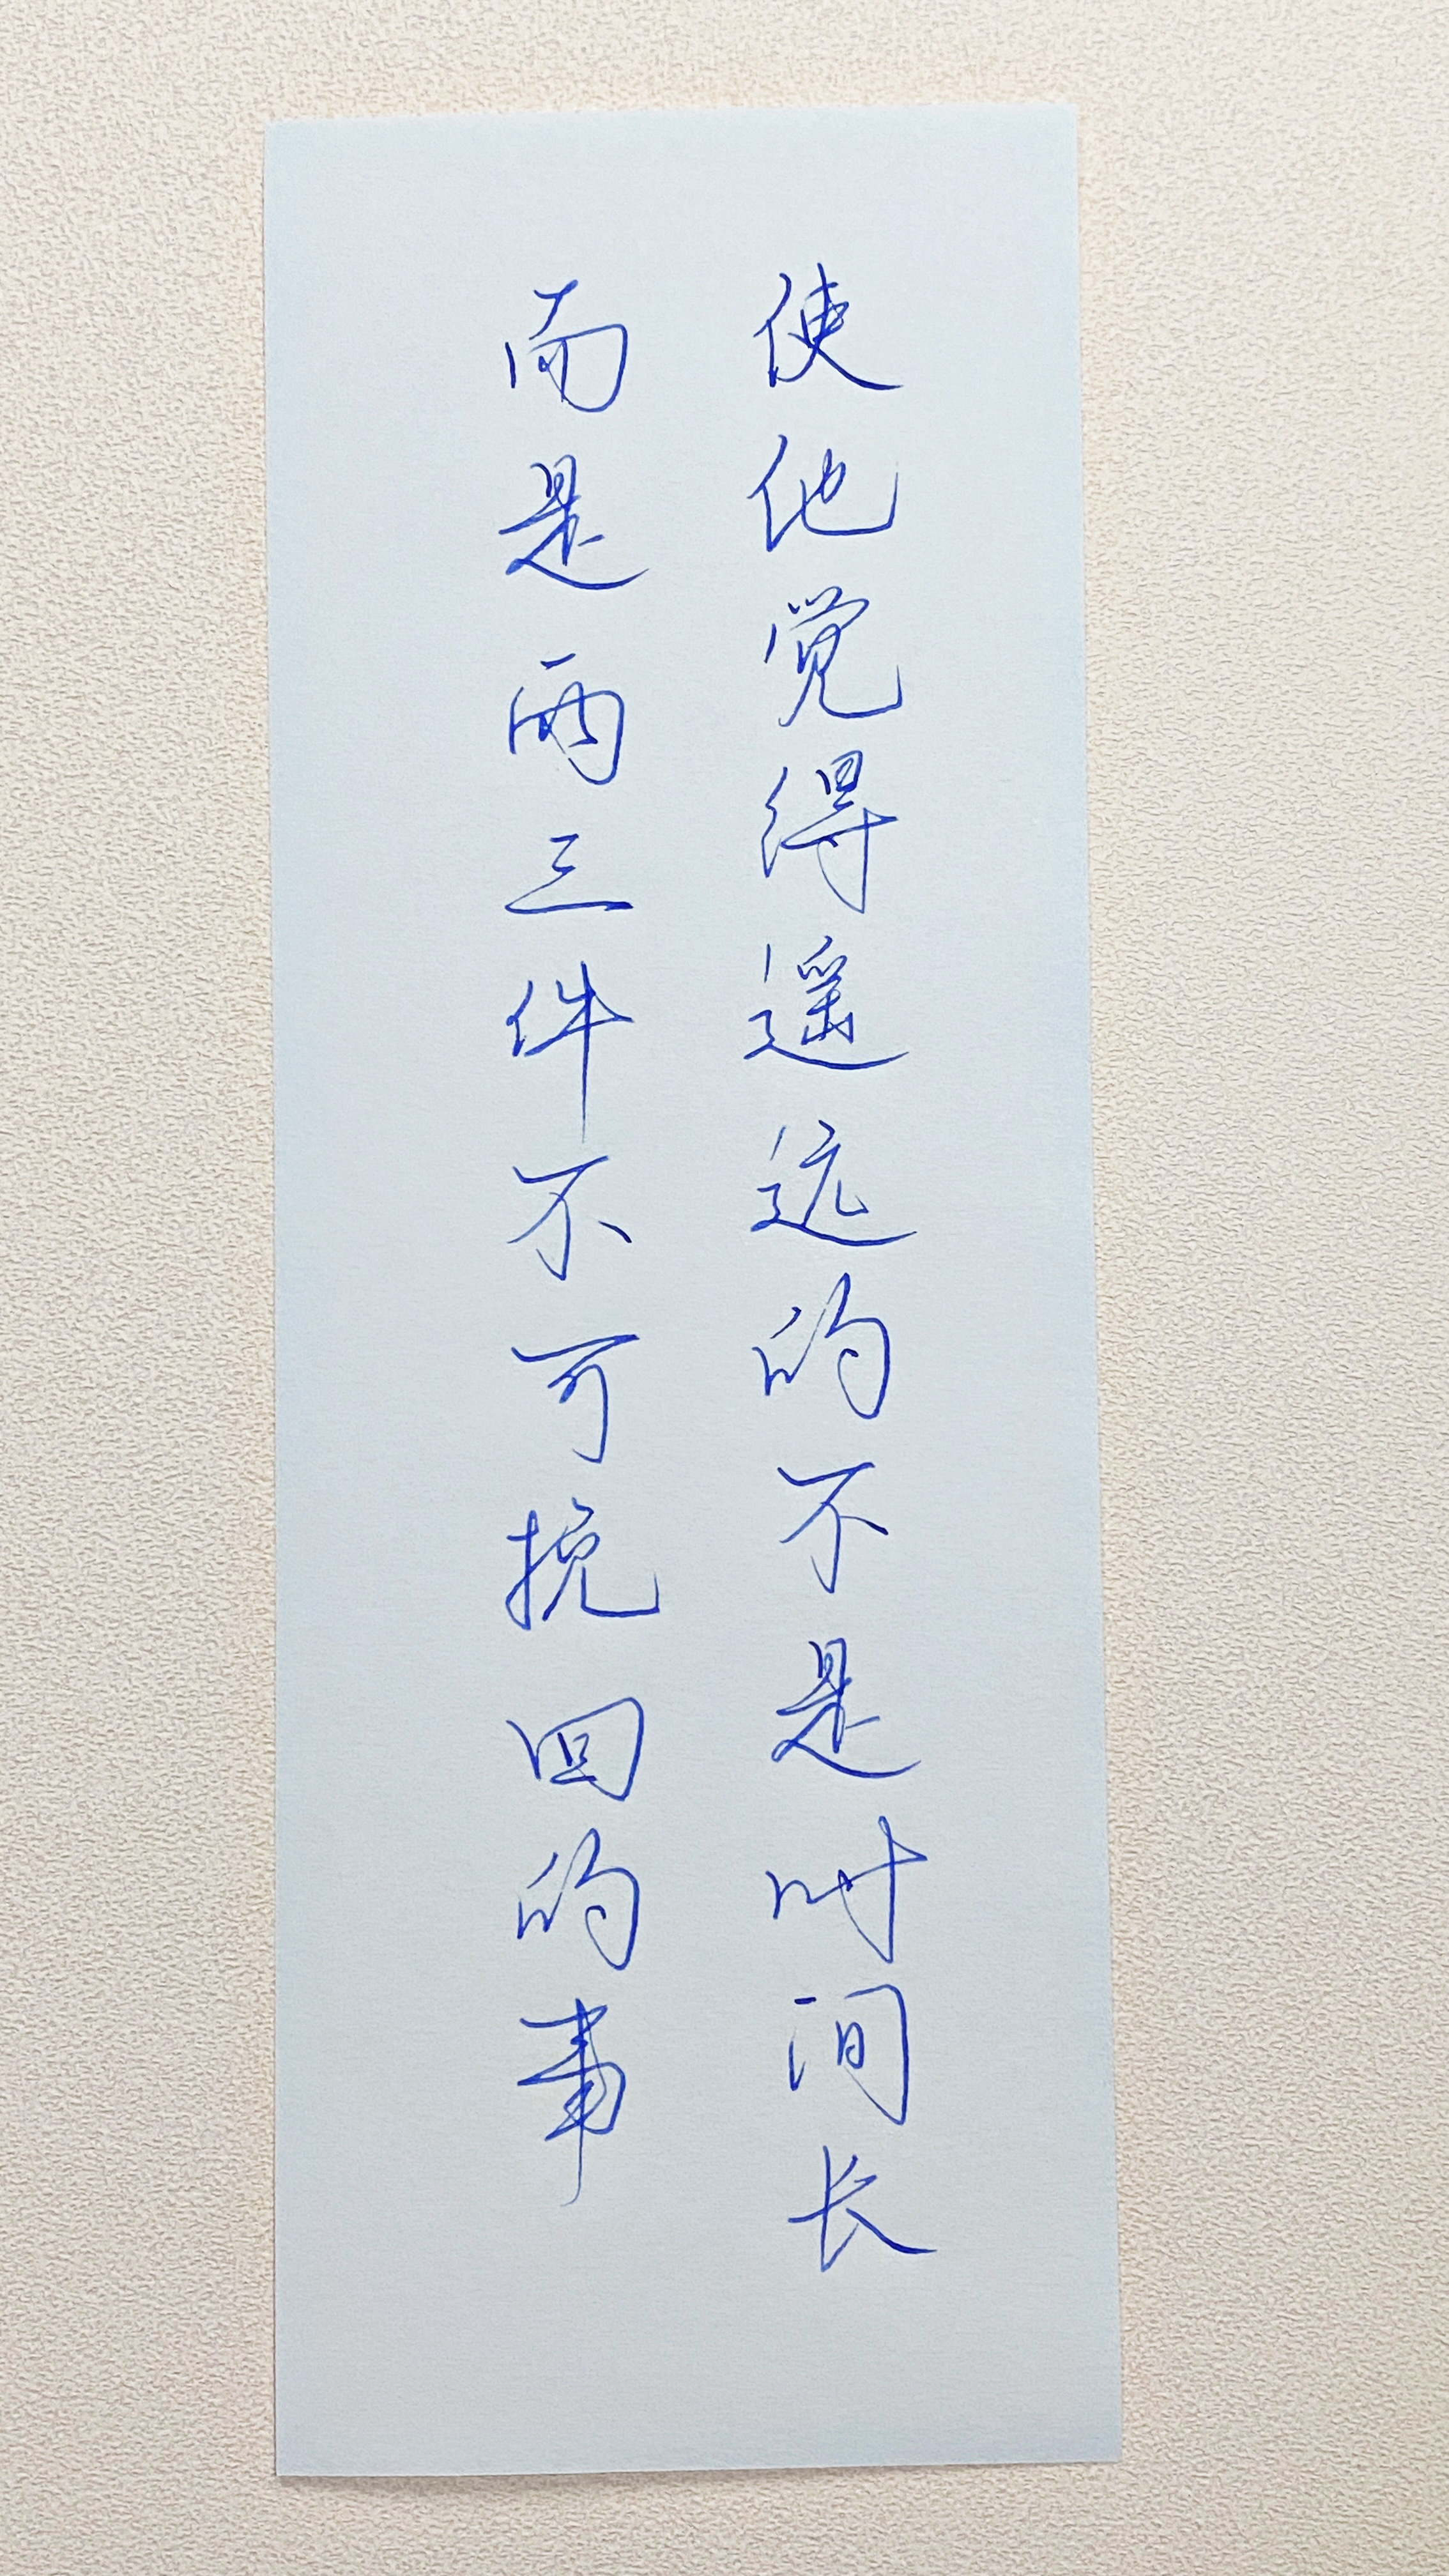 使他觉得遥远的不是时间长
而是两三件不可挽回的事